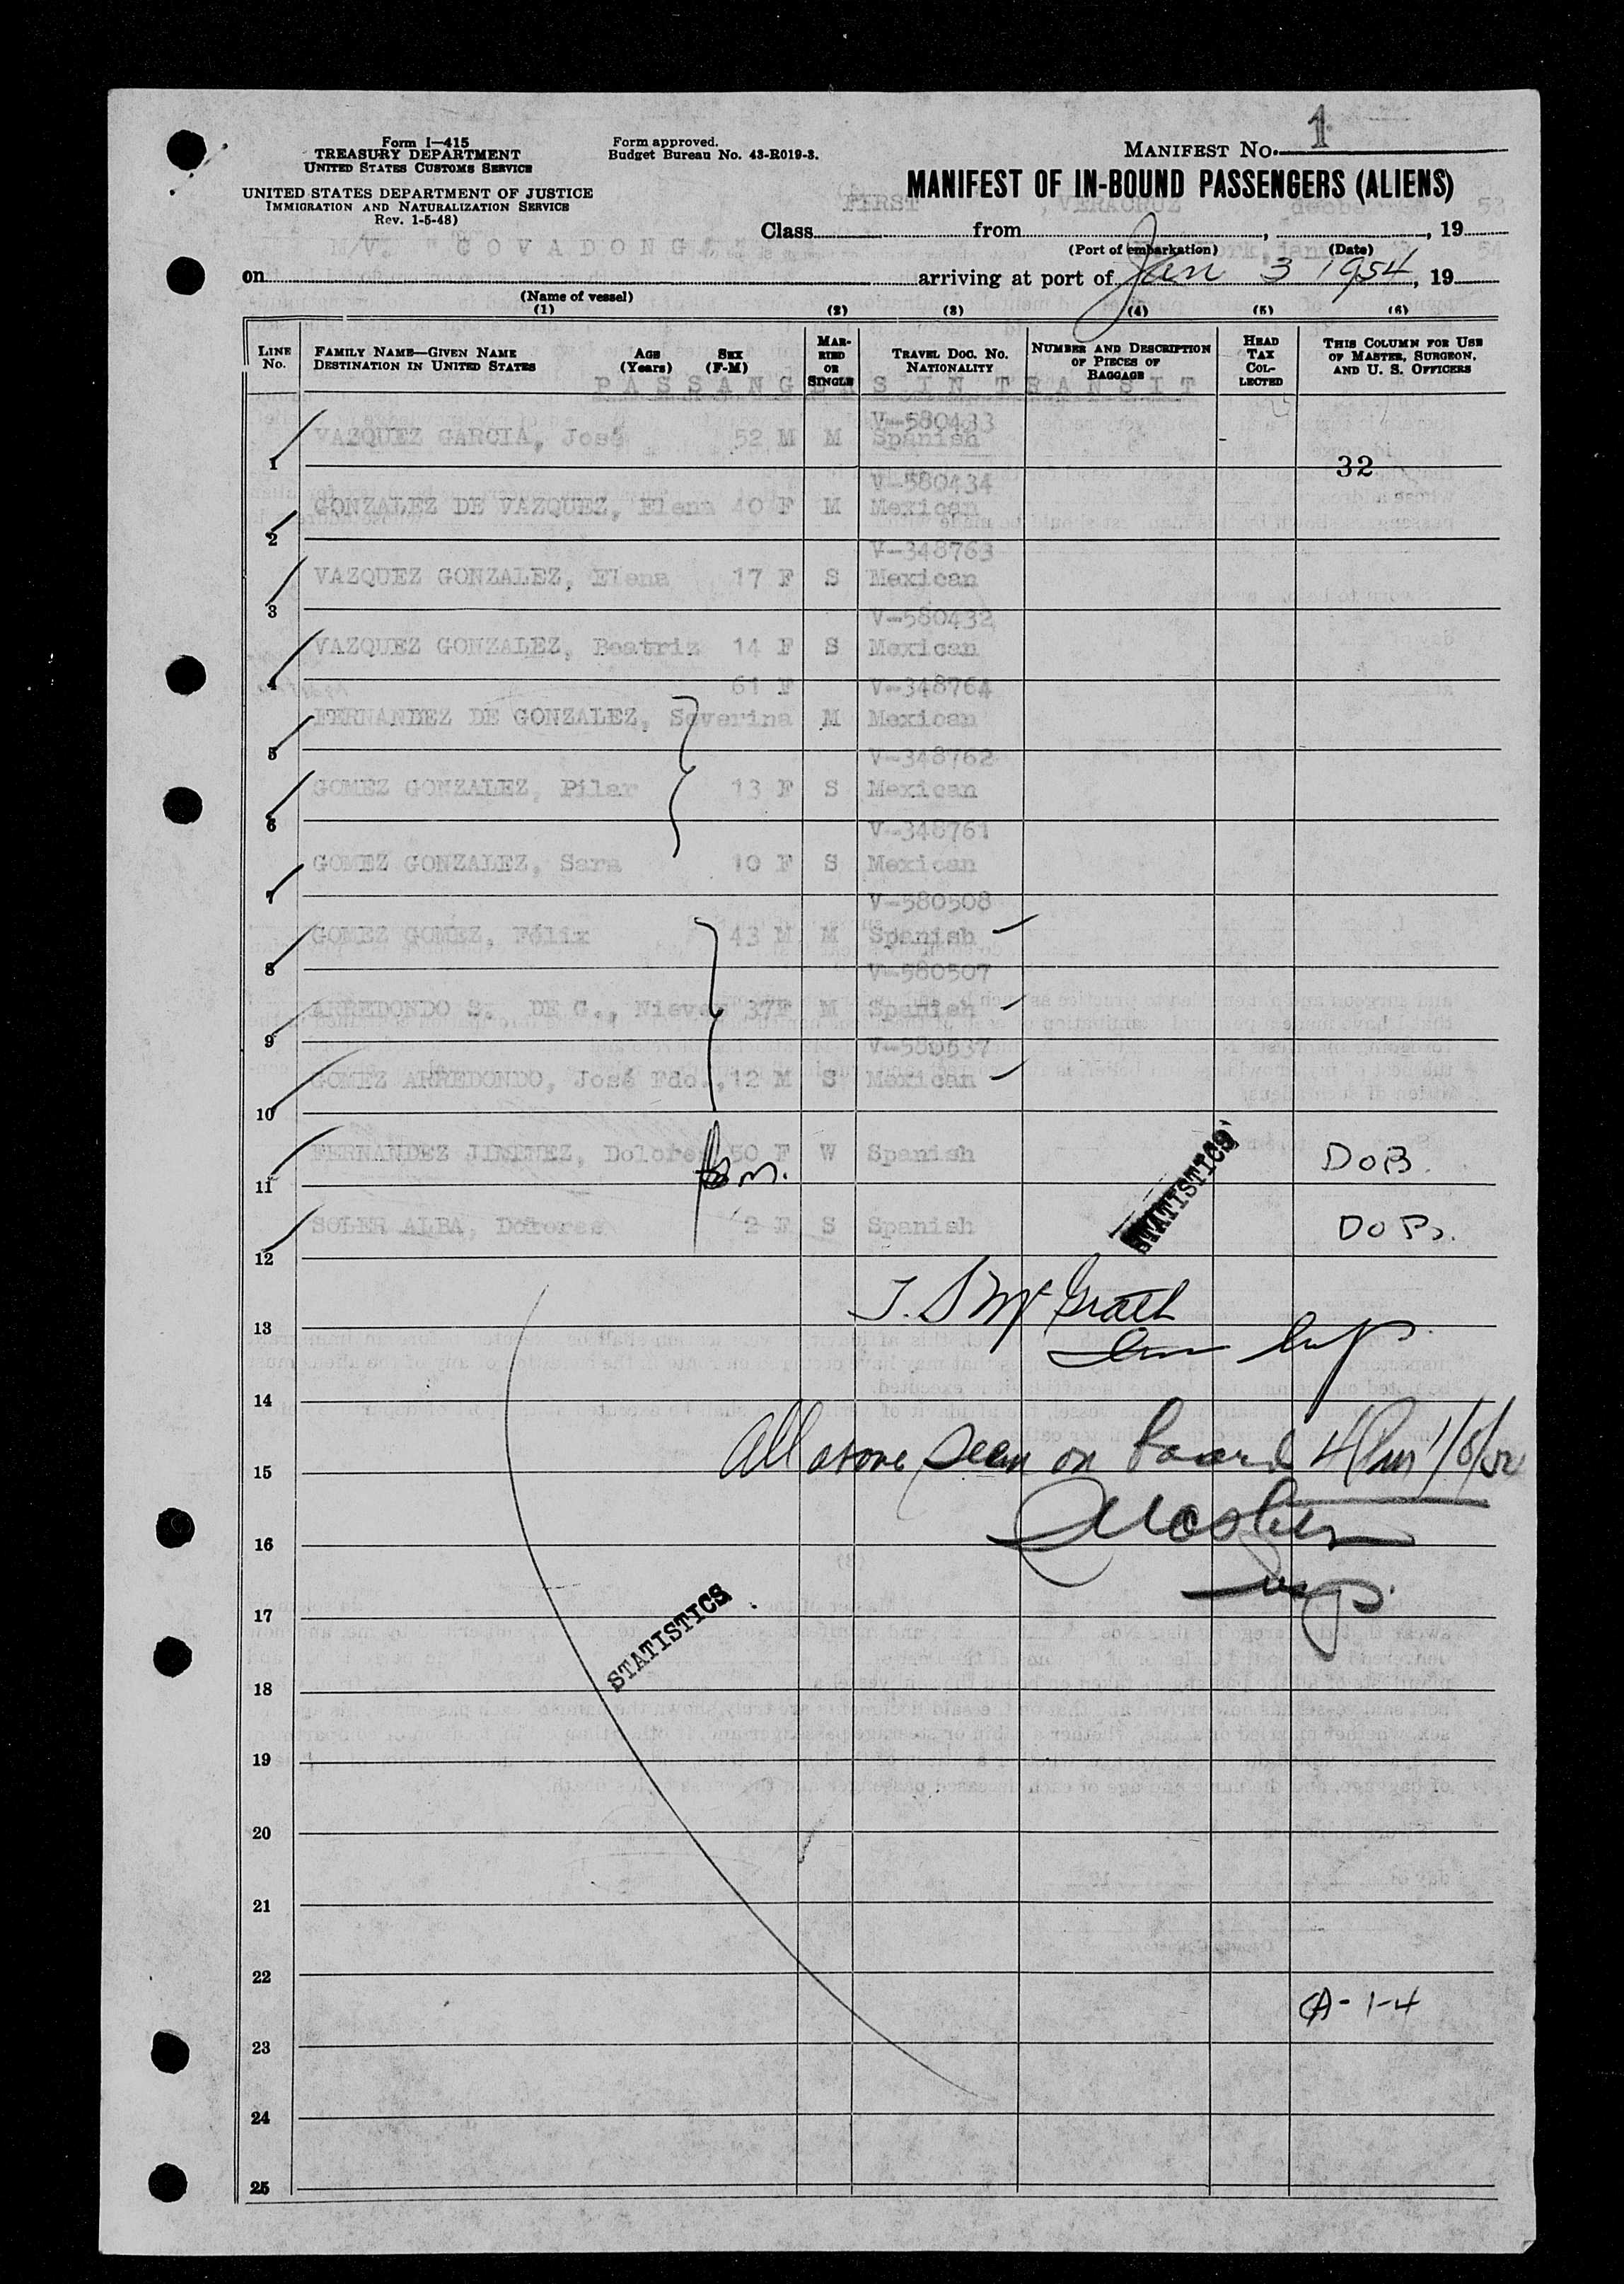 Form I—415
TREASURY DEPARTMENT
UNITED STATES CUSTOMS SERVICE
UNITED STATES DEPARTMENT OF JUSTICE
IMMIGRATION AND NATURALIZATION SERVICE
Rev. 1-5-48)
Form approved.
Budget Bureau No. 43-R019-3.
MANIFEST NO. 1
MANIFEST OF IN-BOUND PASSENGERS (ALIENS)
Class FIRST from , VERACRUZ , , 19 53
(Port of embarkation) (Date)
on M/V. "COVADONGA" arriving at port of Jan 3 1954, 19 54
(Name of vessel)
(1) (2) (3) (4) (5) (6)
LINE No. FAMILY NAME—GIVEN NAME DESTINATION IN UNITED STATES AGE (Years) SEX (F-M) MARRIED OR SINGLE TRAVEL DOC. NO. NATIONALITY NUMBER AND DESCRIPTION OF PIECES OF BAGGAGE HEAD TAX COLLECTED THIS COLUMN FOR USE OF MASTER, SURGEON, AND U. S. OFFICERS
PASSANGERS IN TRANSIT
V-580433
1 VAZQUEZ GARCIA, José 52 M M Spanish
32
V-580434
2 GONZALEZ DE VAZQUEZ, Elena 40 F M Mexican
V-348763
3 VAZQUEZ GONZALEZ, Elena 17 F S Mexican
V-580432
4 VAZQUEZ GONZALEZ, Beatriz 14 F S Mexican
61 F V-348764
5 FERNANDEZ DE GONZALEZ, Severina M Mexican
V-348762
6 GOMEZ GONZALEZ, Pilar 13 F S Mexican
V-348761
7 GOMEZ GONZALEZ, Sara 10 F S Mexican
V-580508
8 GOMEZ GOMEZ, Félix 43 M M Spanish
V-580507
9 ARREDONDO S. DE G., Nieves 37F M Spanish
V-580537
10 GOMEZ ARREDONDO, José Fdo., 12 M S Mexican
11 FERNANDEZ JIMENEZ, Dolores 50 F W Spanish DOB.
12 SOLER ALBA, Dolores 2 F S Spanish DOB.
STATISTICS
T. S McGrath
13
Imm Insp.
14
All above seen on board 4 Pm
15
16
Insp.
STATISTICS
17
18
19
20
21
22
A-1-4
23
24
25